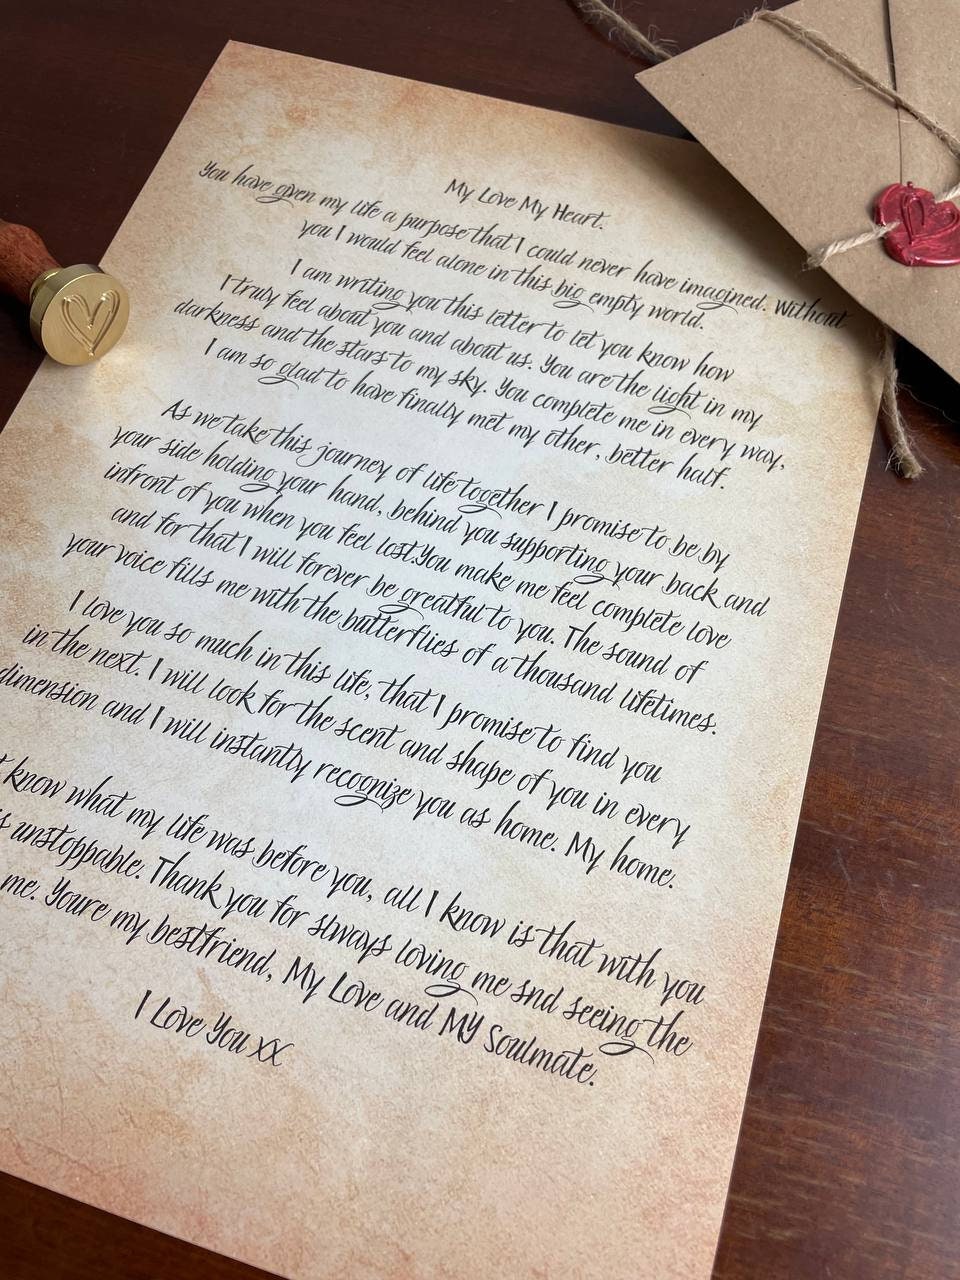 My Love My Heart.
You have given my life a purpose that I could never have imagined. Without
you I would feel alone in this big empty world.
I am writing you this letter to let you know how
I truly feel about you and about us. You are the light in my
darkness and the stars to my sky. You complete me in every way,
I am so glad to have finally met my other, better half.
As we take this journey of life together I promise to be by
your side holding your hand, behind you supporting your back and
infront of you when you feel lost.You make me feel complete love
and for that I will forever be greatful to you. The sound of
your voice fills me with the butterflies of a thousand lifetimes.
I love you so much in this life, that I promise to find you
in the next. I will look for the scent and shape of you in every
dimension and I will instantly recognize you as home. My home.
know what my life was before you, all I know is that with you
unstoppable. Thank you for slways loving me snd seeing the
me. Youre my bestfriend, My Love and MY Soulmate.
I Love You xX